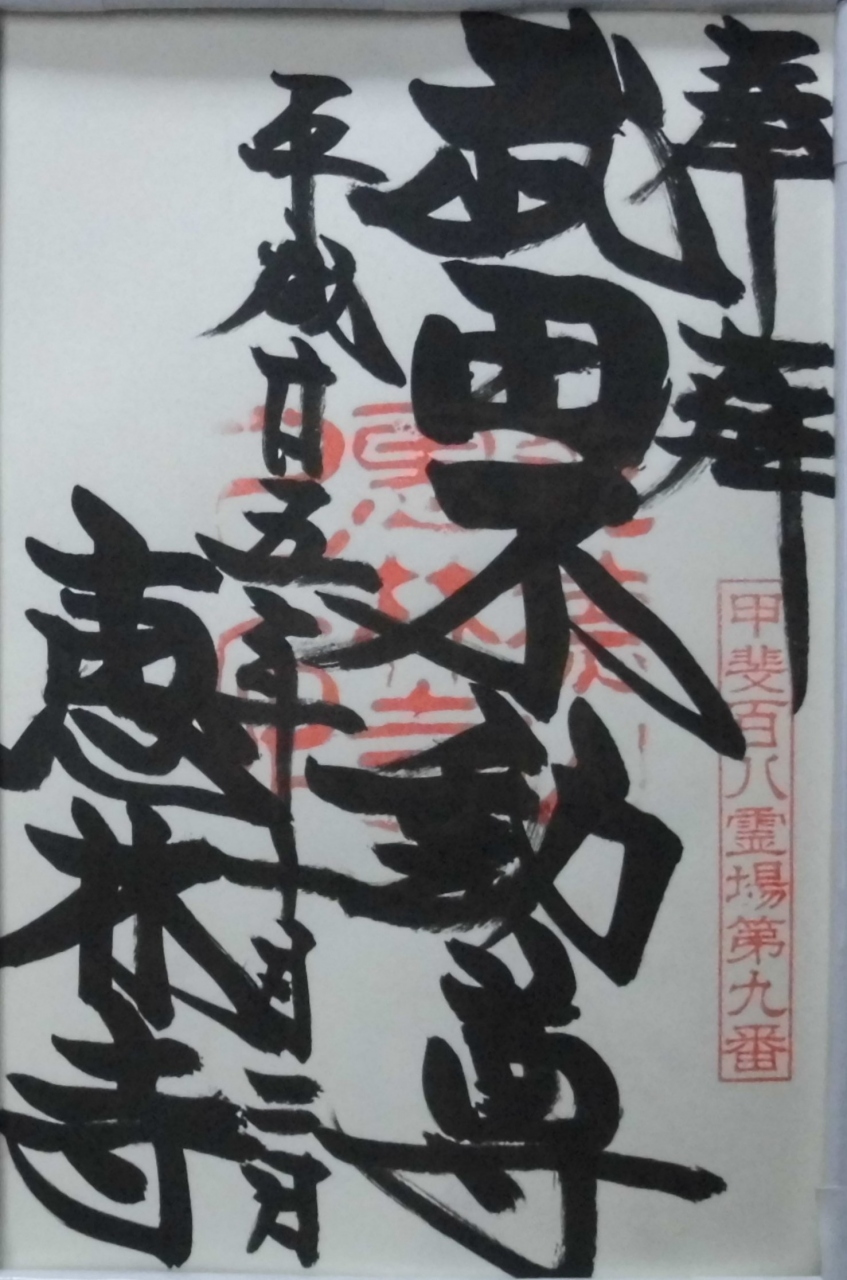 奉拝
甲斐百八霊場第九番
武田不動尊
平成廿五年一月二日
恵林寺